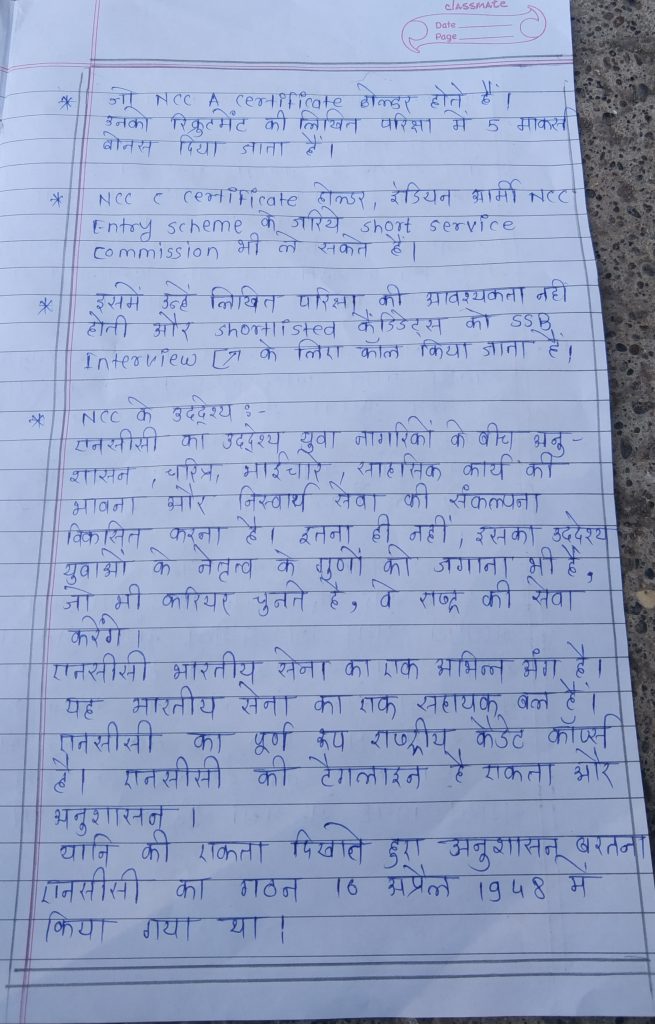 classmate
Date
Page
* जो NCC A certificate होल्डर होते हैं।
उनको रिक्रुटमेंट की लिखित परिक्षा में 5 मार्क्स
बोनस दिया जाता है।
* NCC C certificate होल्डर, इंडियन आर्मी NCC
Entry scheme के जरिये short service
commission भी ले सकते हैं।
* इसमें उन्हें लिखित परिक्षा की आवश्यकता नही
होती और shortlisted कैंडिडेट्स को SSB
Interview के लिए कॉल किया जाता है।
* NCC के उद्देश्य :-
एनसीसी का उद्देश्य युवा नागरिकों के बीच अनु-
शासन, चरित्र, भाईचारे, साहसिक कार्य की
भावना और निस्वार्थ सेवा की संकल्पना
विकसित करना है। इतना ही नहीं, इसका उद्देश्य
युवाओं के नेतृत्व के गुणों को जगाना भी है,
जो भी करियर चुनते है, वे राष्ट्र की सेवा
करेंगे।
एनसीसी भारतीय सेना का एक अभिन्न अंग है।
यह भारतीय सेना का एक सहायक बल है।
एनसीसी का पूर्ण रूप राष्ट्रीय कैडेट कॉर्प्स
है। एनसीसी की टैगलाइन है एकता और
अनुशासन।
यानि की एकता दिखाते हुए अनुशासन बरतना
एनसीसी का गठन 16 अप्रैल 1948 में
किया गया था।